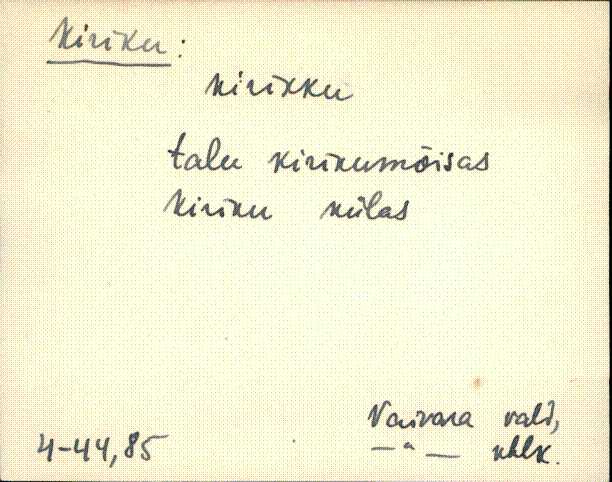 Kiriku:
kirikku
talu kirikumõisas
Kiriku külas
Vaivara vald,
4-44,85 —"— khlk.